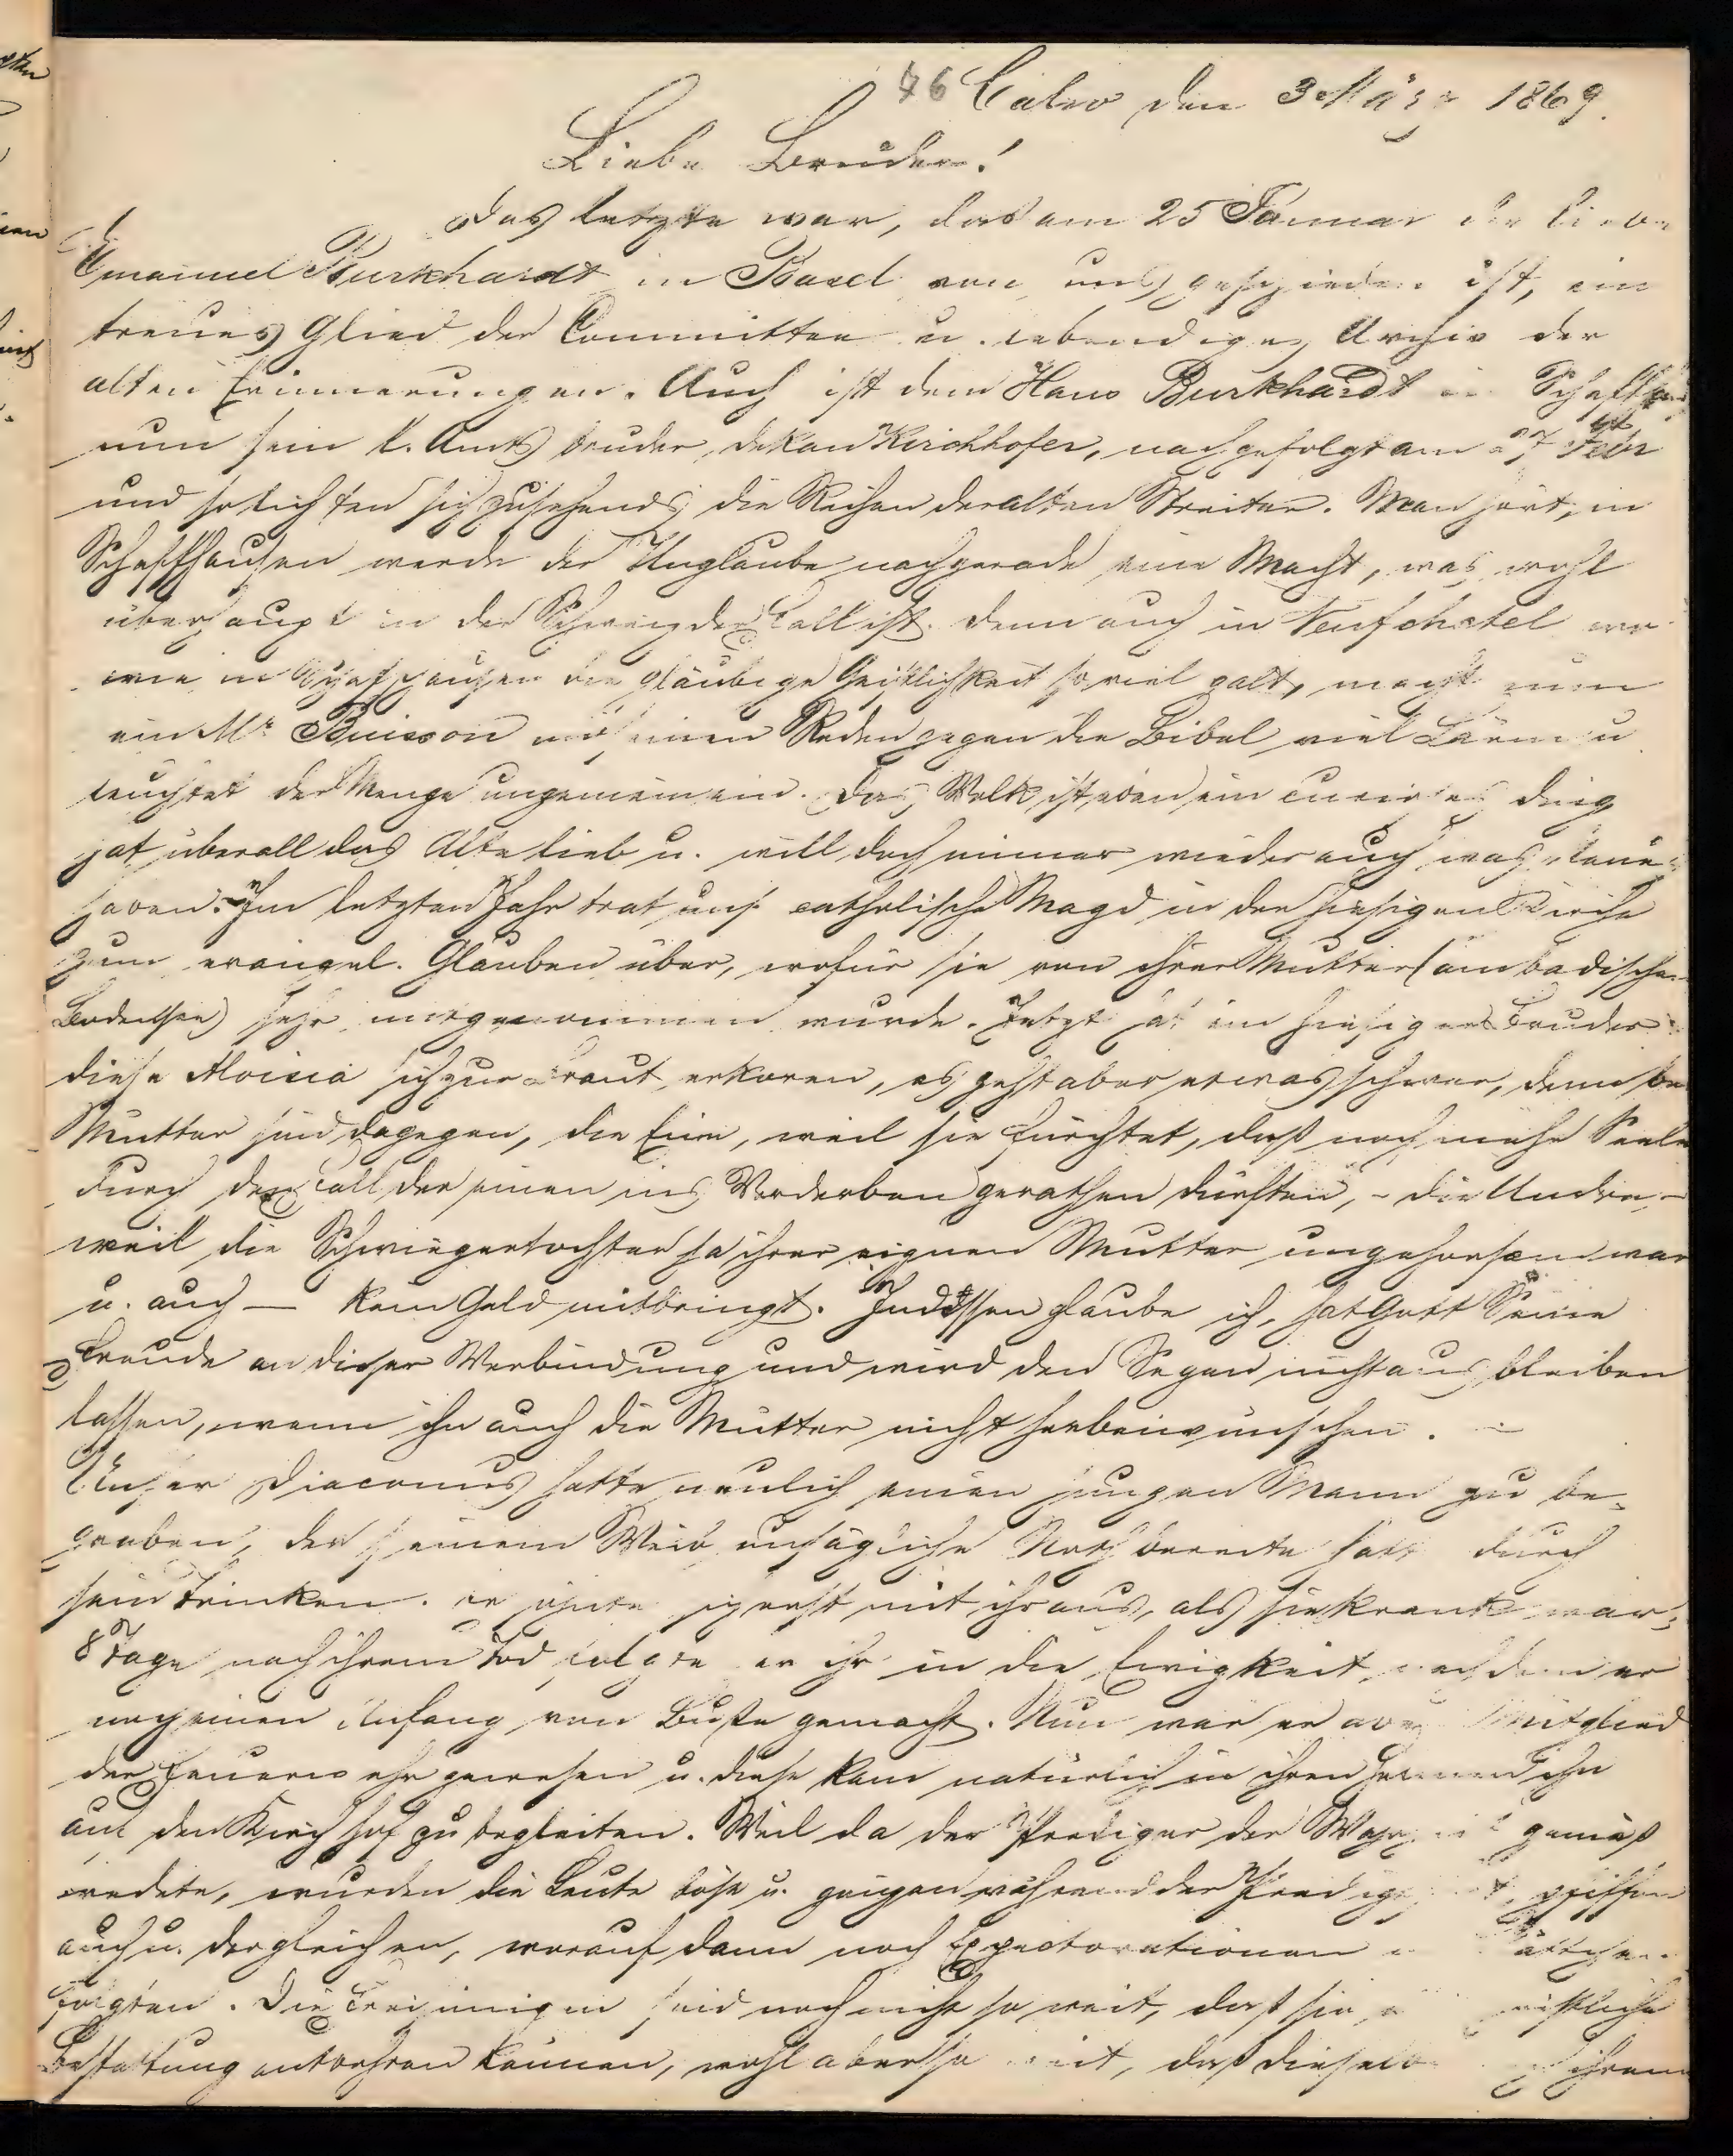 46 Calw den 3 März 1869.
Liebe Brüder!
Das letzte war, das am 25 Januar der liebe
Emanuel Burkhardt in Basel von uns geschieden ist, ein
treues Glied der Committee u. lebendiges Archiv der
alten Erinnerungen. Auch ist dem Hans Burkhardt in Schaffh
nun sein l. Amtsbruder, Dekan Kirchhofer, nachgefolgt am 27 Febr
und so lichten sich zusehends die Reihen der alten Streiter. Man hört, in
Schaffhausen werde der Unglaube nachgerade eine Macht, was wohl
überhaupt in der Schweiz der Fall ist. denn auch in Neufchatel wo
wie in Schaffhausen die gläubige Geistlichkeit so viel galt, macht nun
ein Mr Buisson mit seinen Reden gegen die Bibel viel Lärm u
leuchtet der Menge ungemein ein. Das Volk ist eben ein curioses Ding
hat überall das Alte lieb u. will doch immer wieder auch was Neues
haben. Im letzten Jahr trat uns. catholische Magd in der hiesigen Kirche
zum evangel. Glauben über, wofür sie von ihrer Mutter (am badischen
Bodensee) sehr mitgenommen wurde. Jetzt hat ein hiesiger Bruder
diese Aloisia sich zur Braut erkoren, es geht aber etwas schwer, denn be
Mütter sind dagegen, die Eine, weil sie fürchtet, daß noch mehr Seele
durch den Fall der einen ins Verderben gerathen dürften, - die Andre, -
weil die Schwiegertochter ja ihrer eignen Mutter ungehorsam war
u. auch — kein Geld mitbringt. Indessen glaube ich, hat Gott Seine
Freude an dieser Verbindung und wird den Segen nicht ausbleiben
lassen, wenn ihn auch die Mütter nicht herbeiwünschen. -
Unser Diaconus hatte neulich einen jungen Mann zu be-
graben, der seinem Weib unsägliche Noth bereitet hatte durch
sein Trinken. er söhnte sich erst mit ihr aus, als sie krank war;
8 Tage nach ihrem Tod folgte er ihr in die Ewigkeit, nachdem er
noch einen Anfang von Buße gemacht. Nun war er aber Mitglied
der Feuerwehr gewesen u. diese kam natürlich in ihren ihn
auf den Kirchhof zu begleiten. Weil da der Prediger der Wahrheit gemäß
redete, wurden die Leute böse u. giengen während der Predigt, pfiffen
auch u. dergleichen, worauf dann noch Expectorationen
folgten. Die Freisinnigen sind noch nicht so weit, daß sie
Bestattung entbehren können, wohl aber so weit, daß dieselbe ihrem